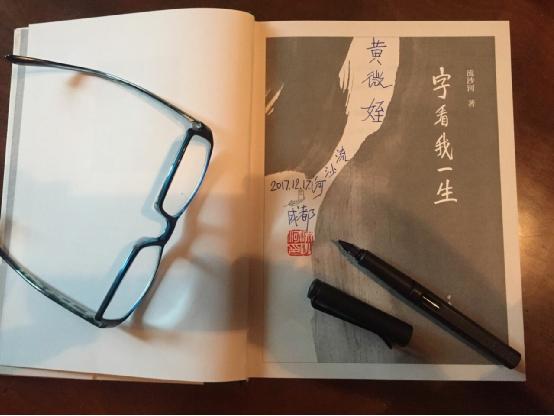 流沙河 著
字看我一生
黄微姪
流沙河
2017.12.17
成都